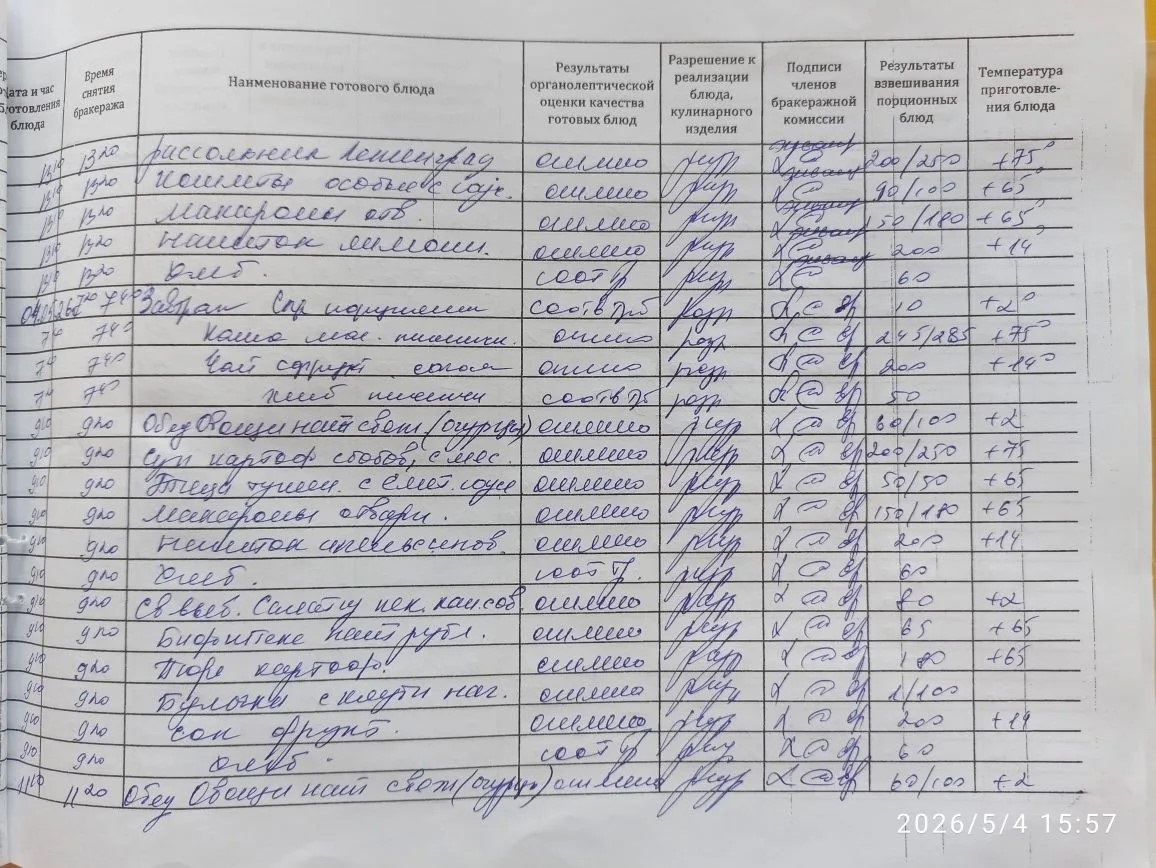 Дата и час готовления блюда | Время снятия бракеража | Наименование готового блюда | Результаты органолептической оценки качества готовых блюд | Разрешение к реализации блюда, кулинарного изделия | Подписи членов бракеражной комиссии | Результаты взвешивания порционных блюд | Температура приготовле-ния блюда
13 10 13 20 рассольник Ленинград отлично разр 200/250 +75°
13 10 13 20 Котлеты особые с соус. отлично разр 90/100 +65°
13 10 13 20 Макароны отв. отлично разр 150/180 +65°
13 10 13 20 Напиток лимонн. отлично разр 200 +14°
13 10 13 20 Хлеб. соотв разр 60
7 40 Завтрак Сыр порциями соотв разр 10 +2°
7 40 Каша мол. пшенич. отлично разр 245/285 +75°
7 40 Чай с фрукт соком отлично разр 200 +14°
7 40 хлеб пшеничн соотв разр 50
9 10 9 20 Обед Овощи нат свеж (огурцы) отлично разр 60/100 +2
9 10 9 20 Суп картоф с бобов, с мяс. отлично разр 200/250 +75
9 10 9 20 Птица тушен. с смет. соусе отлично разр 50/50 +65
9 10 9 20 Макароны отварн. отлично разр 150/180 +65
9 10 9 20 Напиток апельсинов. отлично разр 200 +14
9 10 9 20 Хлеб. соотв. разр 60
9 10 9 20 Св выб. Салат из пек. кап. с ов. отлично разр 80 +2
9 10 9 20 Бифштекс нат рубл. отлично разр 65 +65
9 10 9 20 Пюре картоф. отлично разр 180 +65
9 10 9 20 Булочка с отлично разр 1/100
9 10 9 20 Сок фрукт. отлично разр 200 +14
9 10 9 20 хлеб. соотв разр 60
11 10 11 20 Обед Овощи нат свеж (огурцы) отлично разр 60/100 +2
2026/5/4 15:57